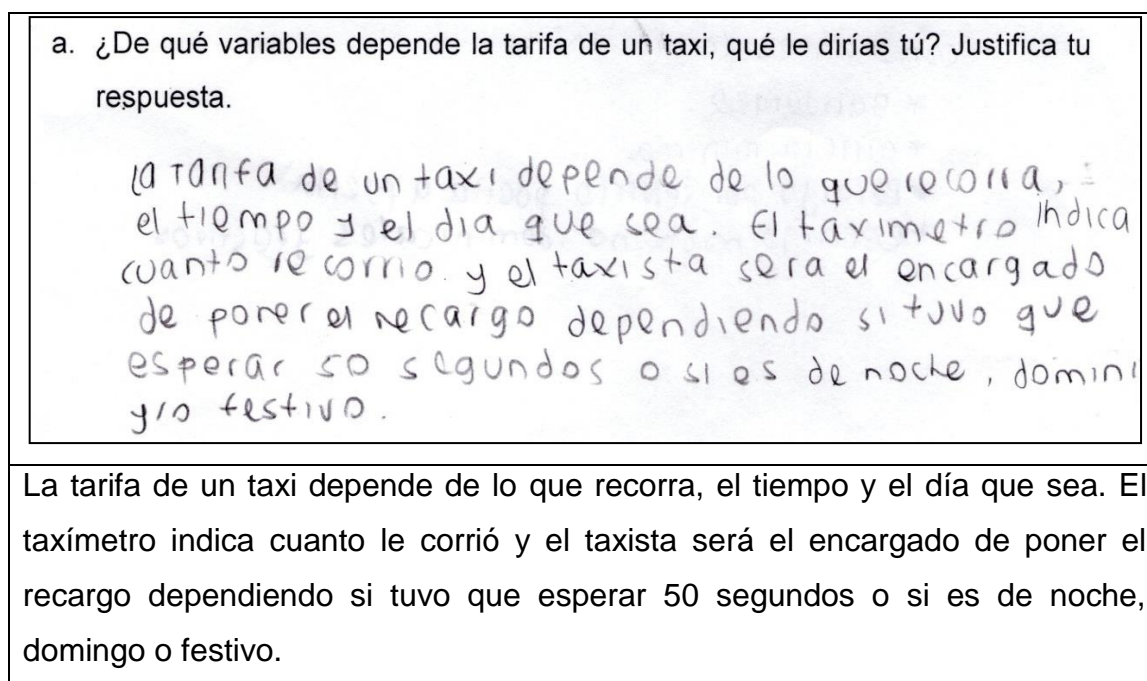 a. ¿De qué variables depende la tarifa de un taxi, qué le dirías tú? Justifica tu
respuesta.
la Tarifa de un taxi depende de lo que recorra,
el tiempo y el dia que sea. El taximetro indica
cuanto recorrio y el taxista sera el encargado
de poner el recargo dependiendo si tuvo que
esperar 50 segundos o si es de noche, domini
y/o festivo.
La tarifa de un taxi depende de lo que recorra, el tiempo y el día que sea. El
taxímetro indica cuanto le corrió y el taxista será el encargado de poner el
recargo dependiendo si tuvo que esperar 50 segundos o si es de noche,
domingo o festivo.